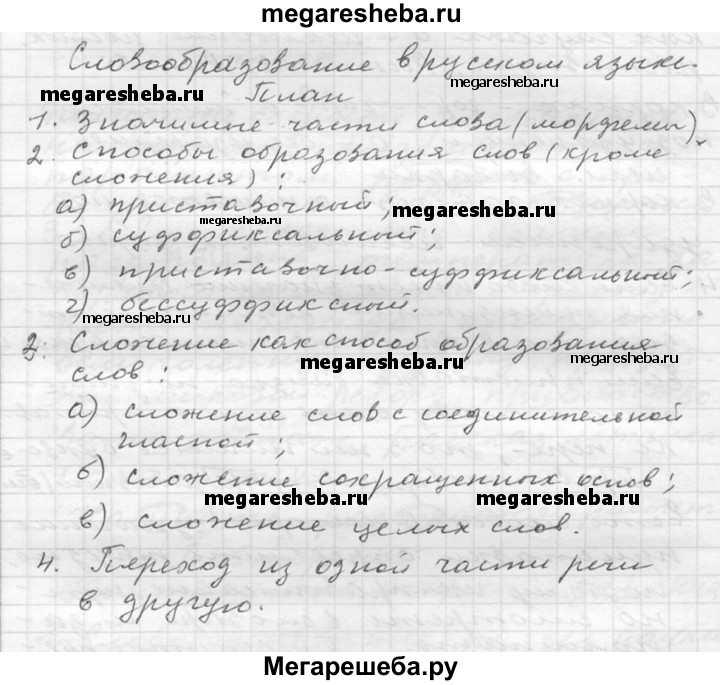 megaresheba.ru
Словообразование в русском языке.
megaresheba.ru
megaresheba.ru План
1. Значимые части слова (морфемы).
2. Способы образования слов (кроме
сложения):
а) приставочный; megaresheba.ru
megaresheba.ru
б) суффиксальный;
в) приставочно-суффиксальный;
г) бессуффиксный.
megaresheba.ru
3. Сложение как способ образования
megaresheba.ru megaresheba.ru
слов:
а) сложение слов с соединительной
гласной;
б) сложение сокращенных основ;
megaresheba.ru megaresheba.ru
в) сложение целых слов.
4. Переход из одной части речи
в другую.
Мегарешеба.ру